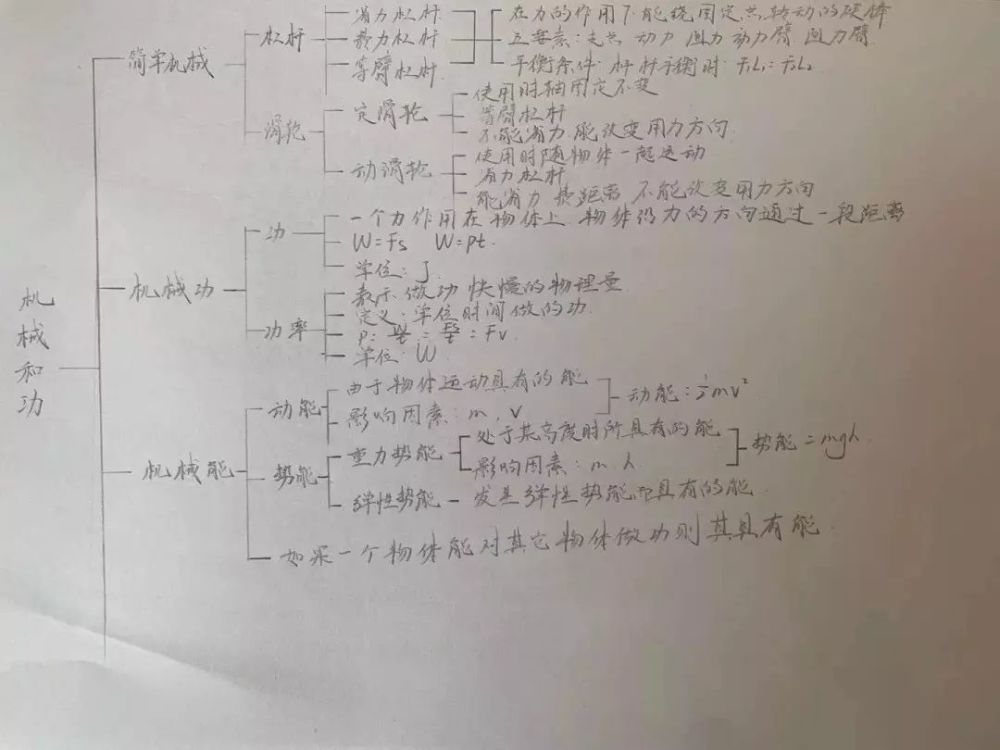 省力杠杆
费力杠杆
等臂杠杆
杠杆
在力的作用下能绕固定点转动的硬棒
五要素:支点 动力 阻力 动力臂 阻力臂
平衡条件:杠杆平衡时:F₁L₁=F₂L₂
简单机械
滑轮
定滑轮
使用时轴固定不变
等臂杠杆
不能省力 能改变用力方向
动滑轮
使用时随物体一起运动
省力杠杆
能省力 费距离 不能改变用力方向
机械和功
机械功
功
一个力作用在物体上 物体沿力的方向通过一段距离
W=Fs W=pt.
单位:J
功率
表示做功快慢的物理量
定义:单位时间做的功
P=W/t=Fs/t=Fv
单位:W
机械能
动能
由于物体运动具有的能
影响因素:m,v
动能:½mv²
势能
重力势能
处于某高度时所具有的能
影响因素:m h
势能=mgh
弹性势能
发生弹性势能而具有的能
如果一个物体能对其它物体做功则其具有能